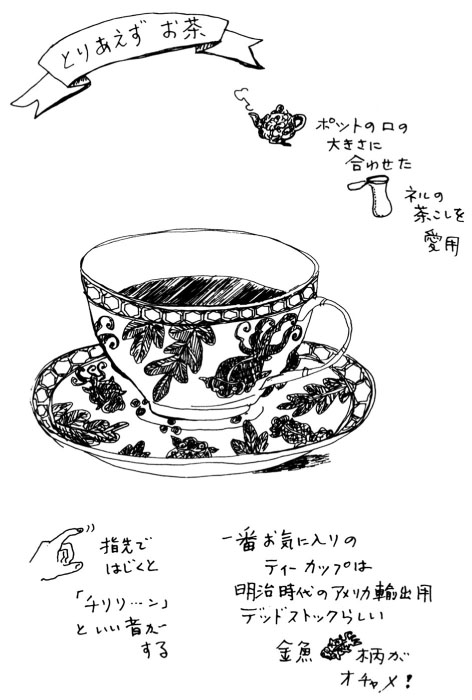 とりあえず お茶
ポットの口の
大きさに
合わせた
ネルの
茶こしを
愛用
指先で
はじくと
「チリリ…ン」
といい音が
する
一番お気に入りの
ティーカップは
明治時代のアメリカ輸出用
デッドストックらしい
金魚 柄が
オチャメ!